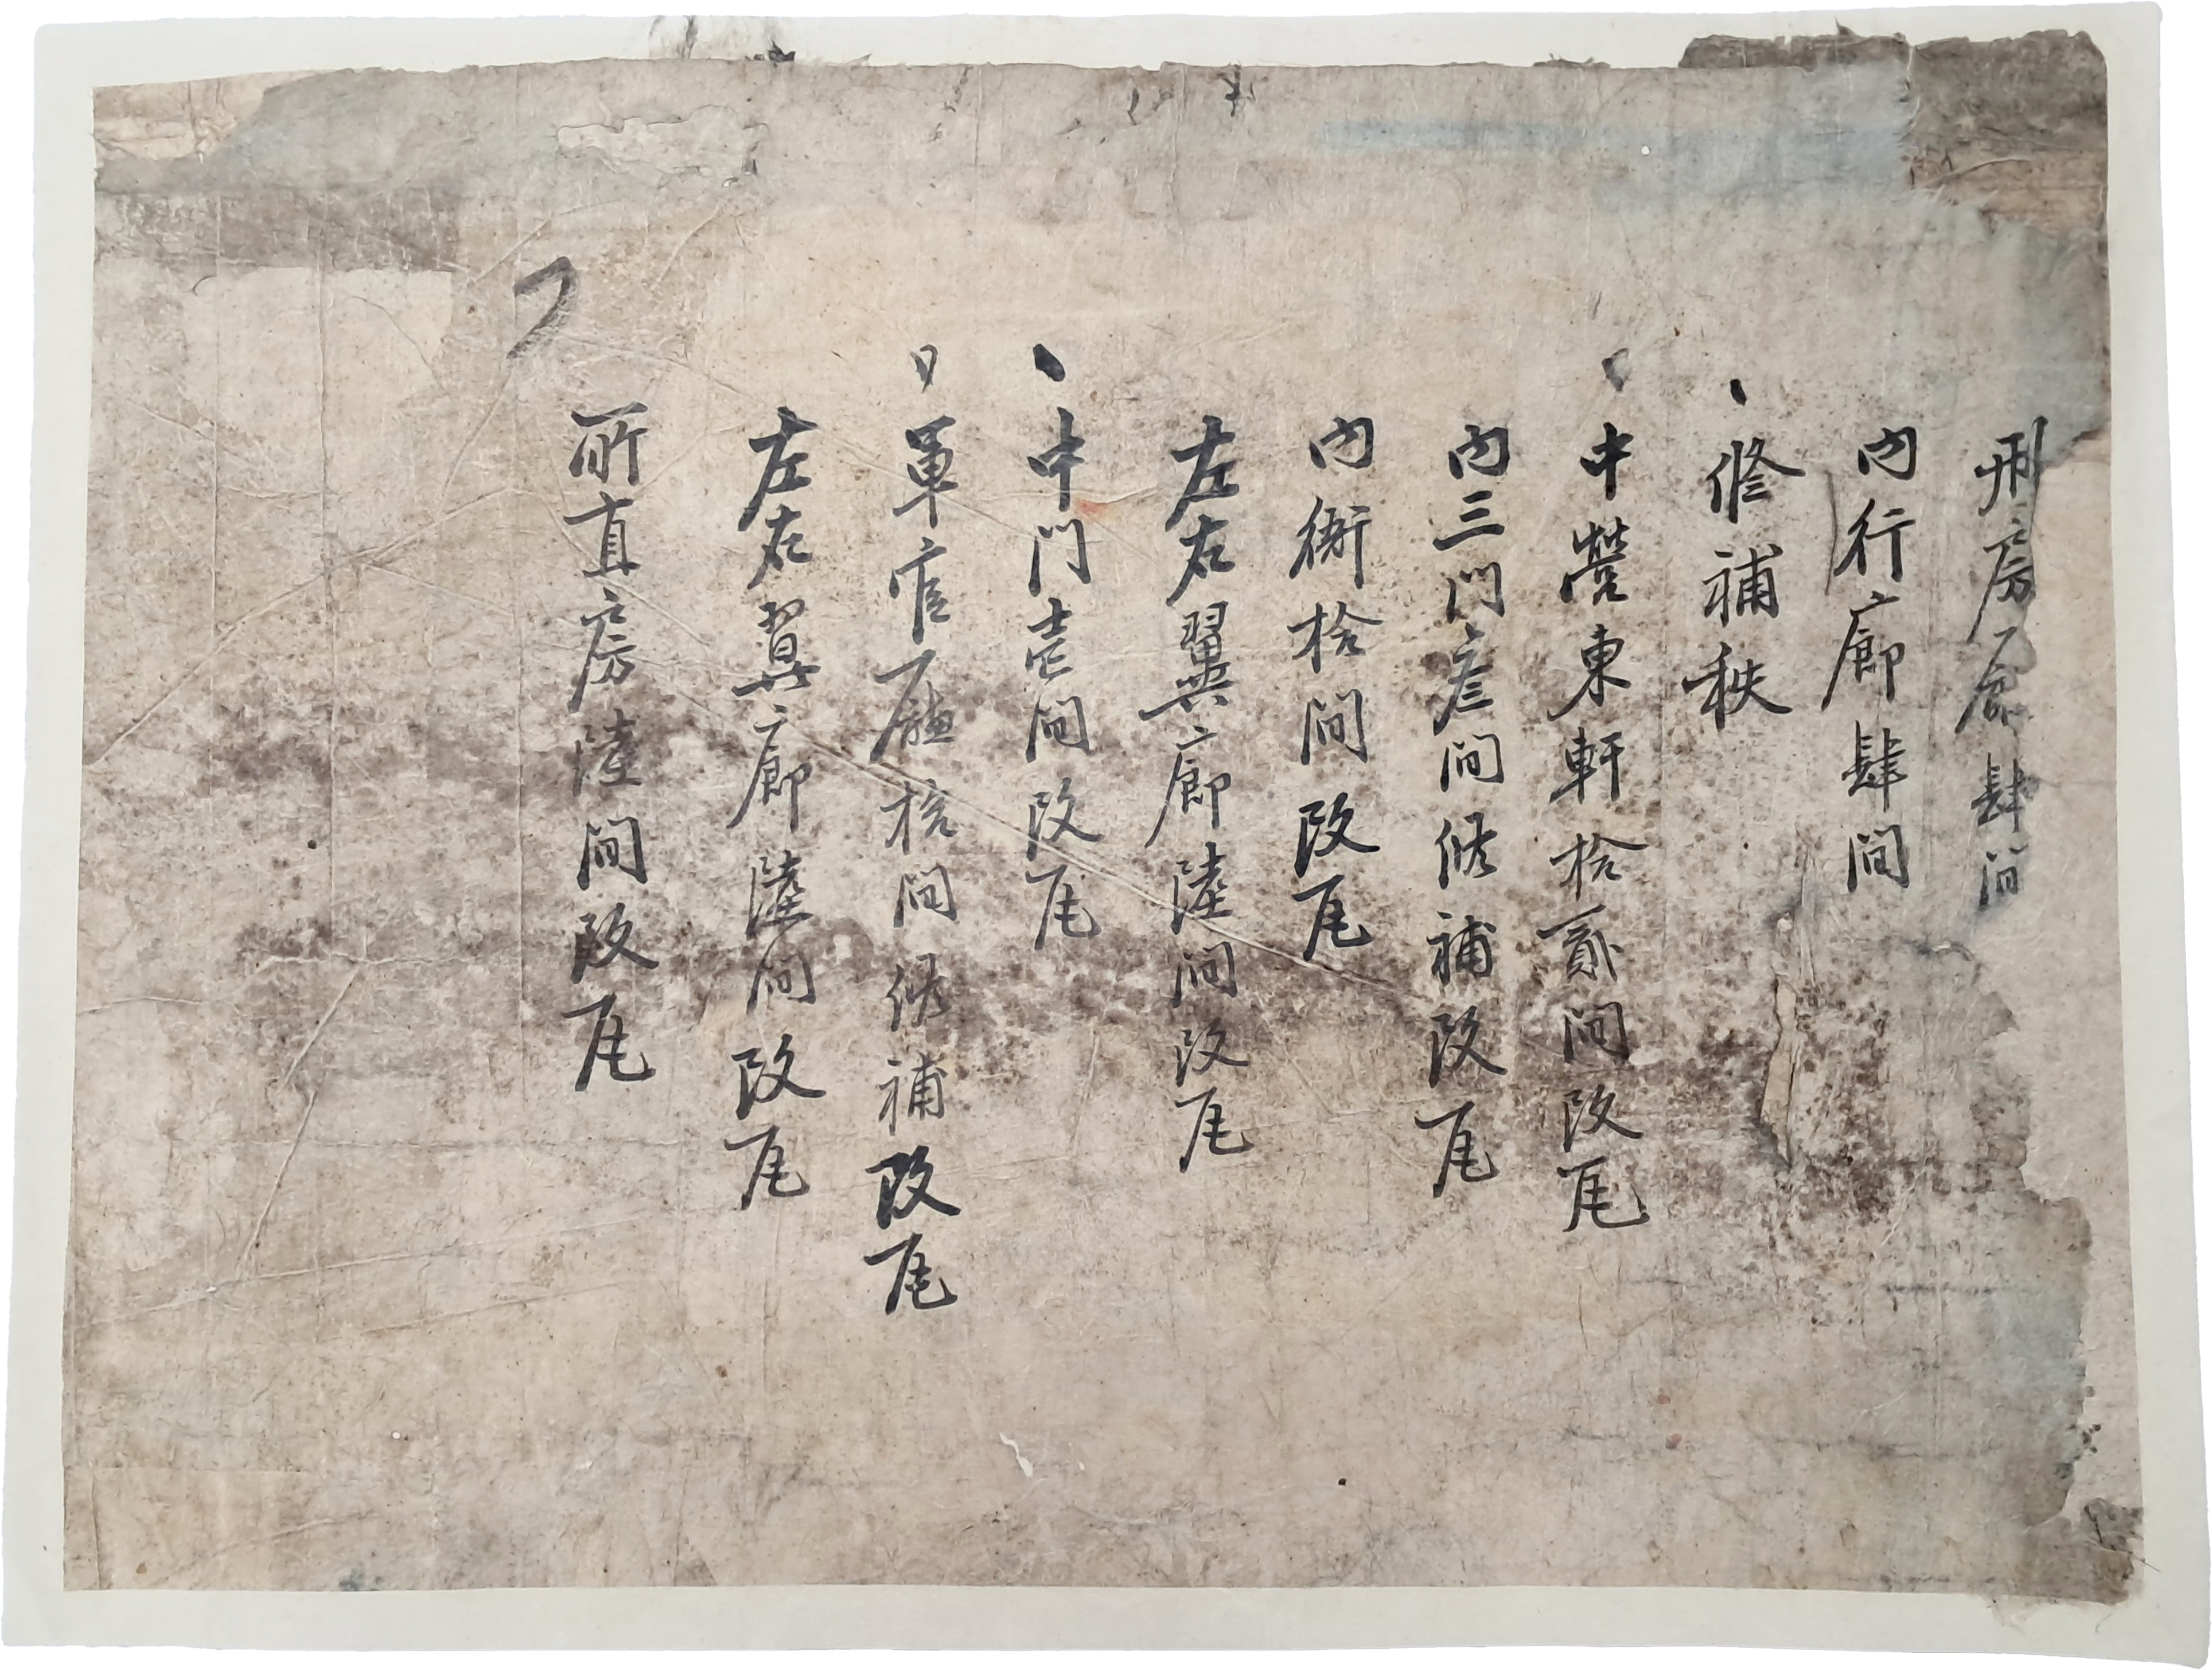 刑房肆間
內行廊肆間
修補秩
中營東軒拾貳間改瓦
內三門叄間修補改瓦
內衙拾間改瓦
左右翼廊陸間改瓦
中門壱間改瓦
軍官廳拾間修補改瓦
左右翼廊陸間改瓦
所直房陸間改瓦